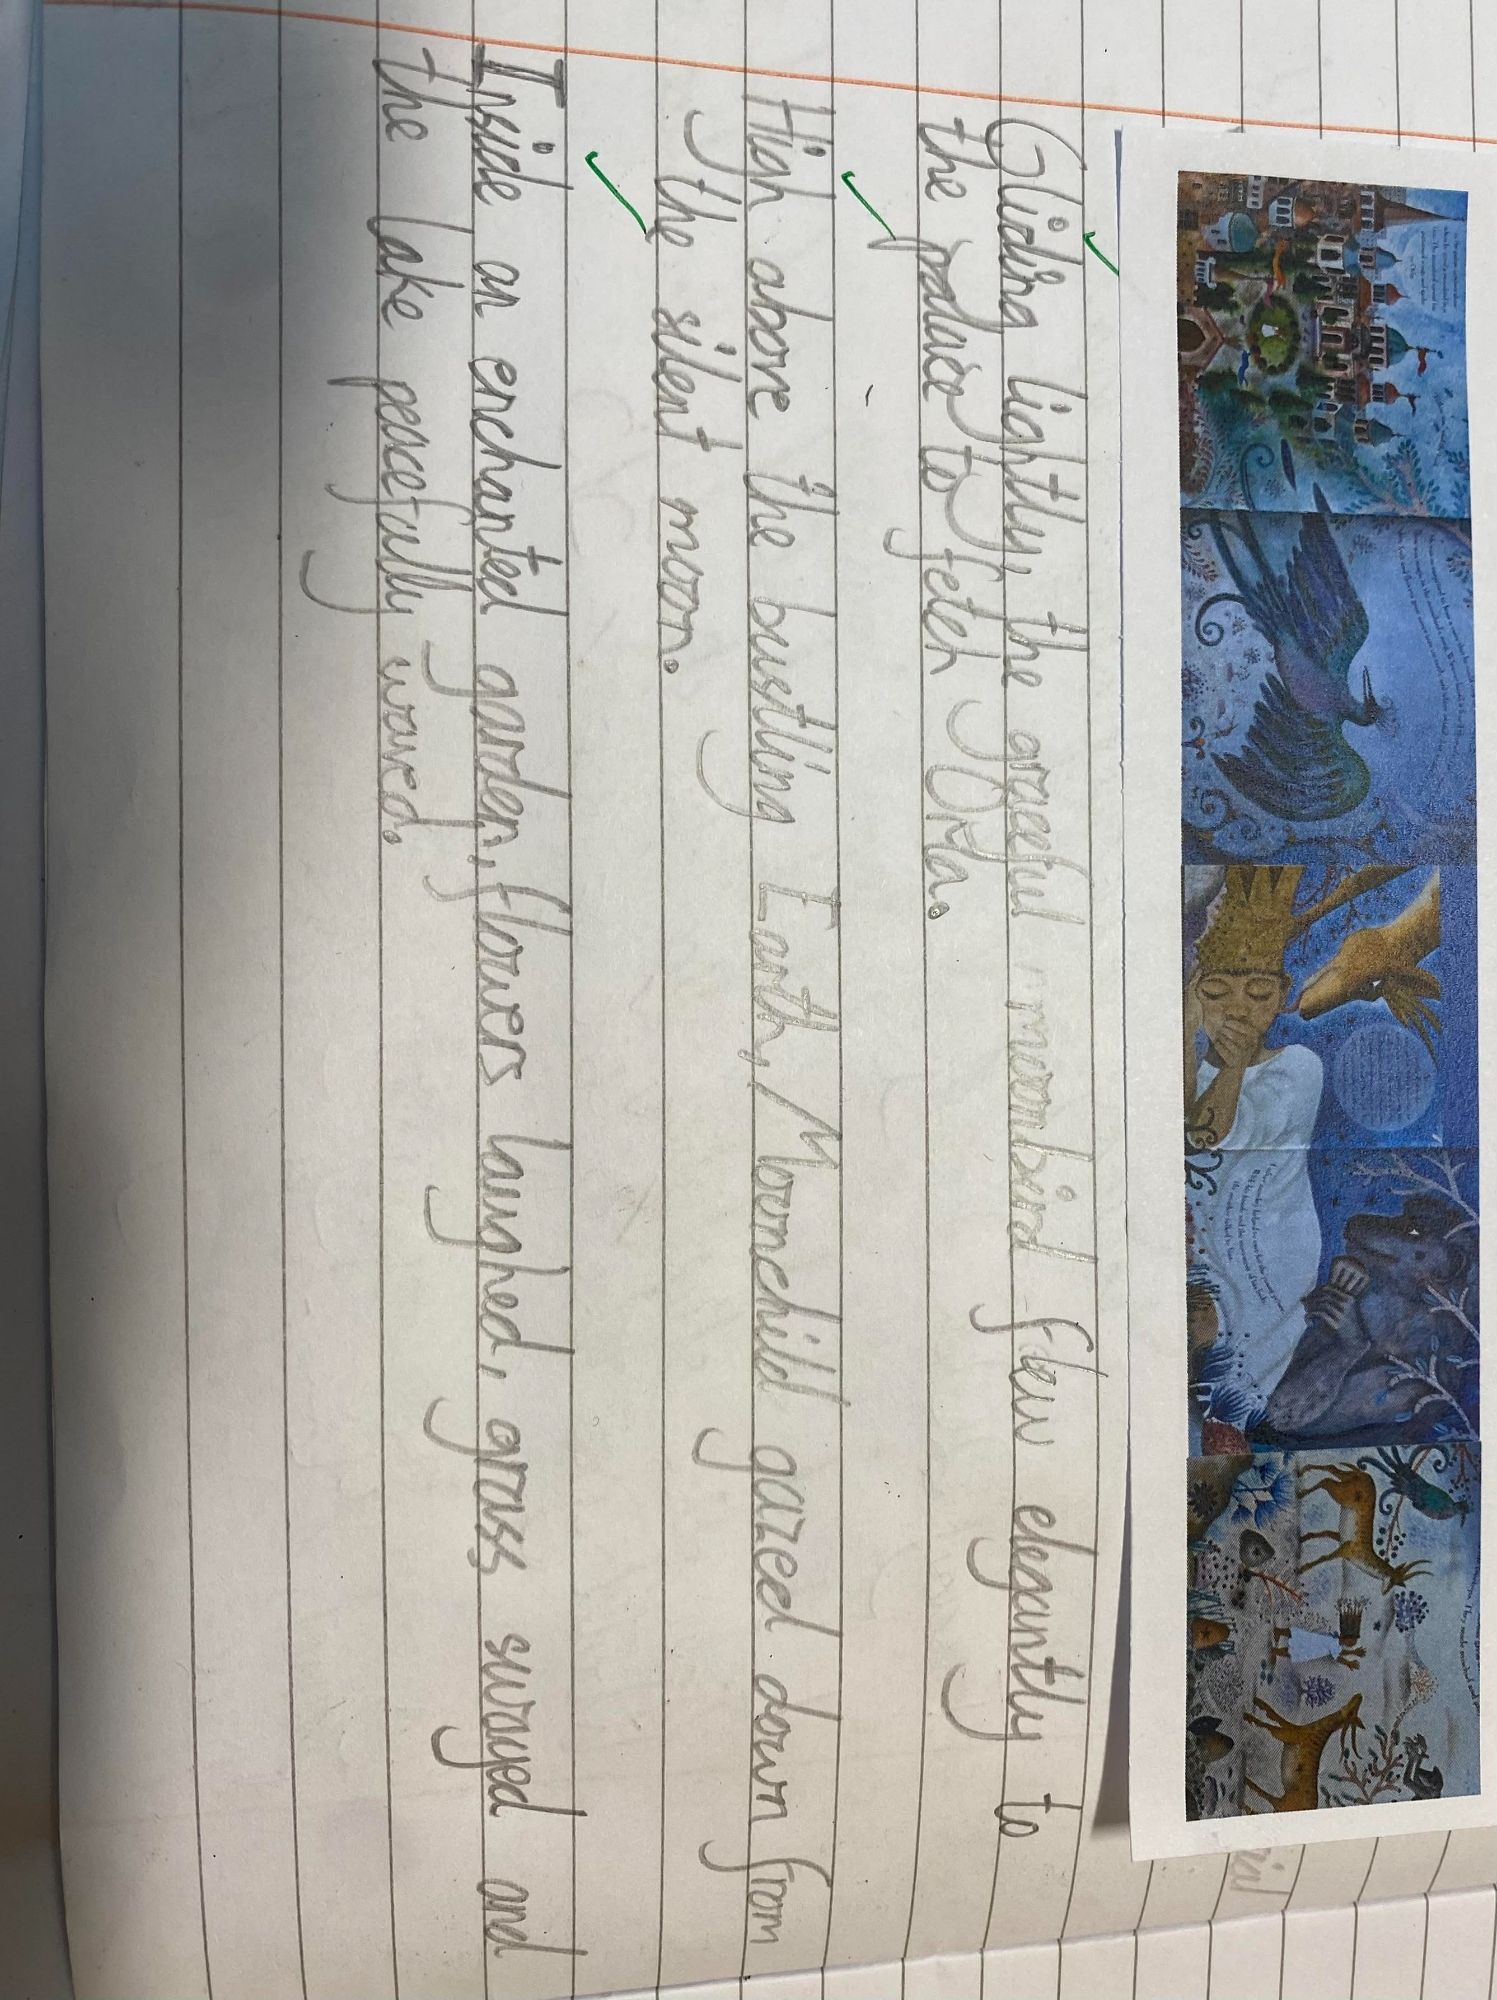 Gliding lightly, the graceful moonbird flew elegantly to
the palace to fetch Orla.
High above the bustling Earth, Moonchild gazed down from
the silent moon.
Inside an enchanted garden, flowers laughed, grass swayed and
the lake peacefully waved.